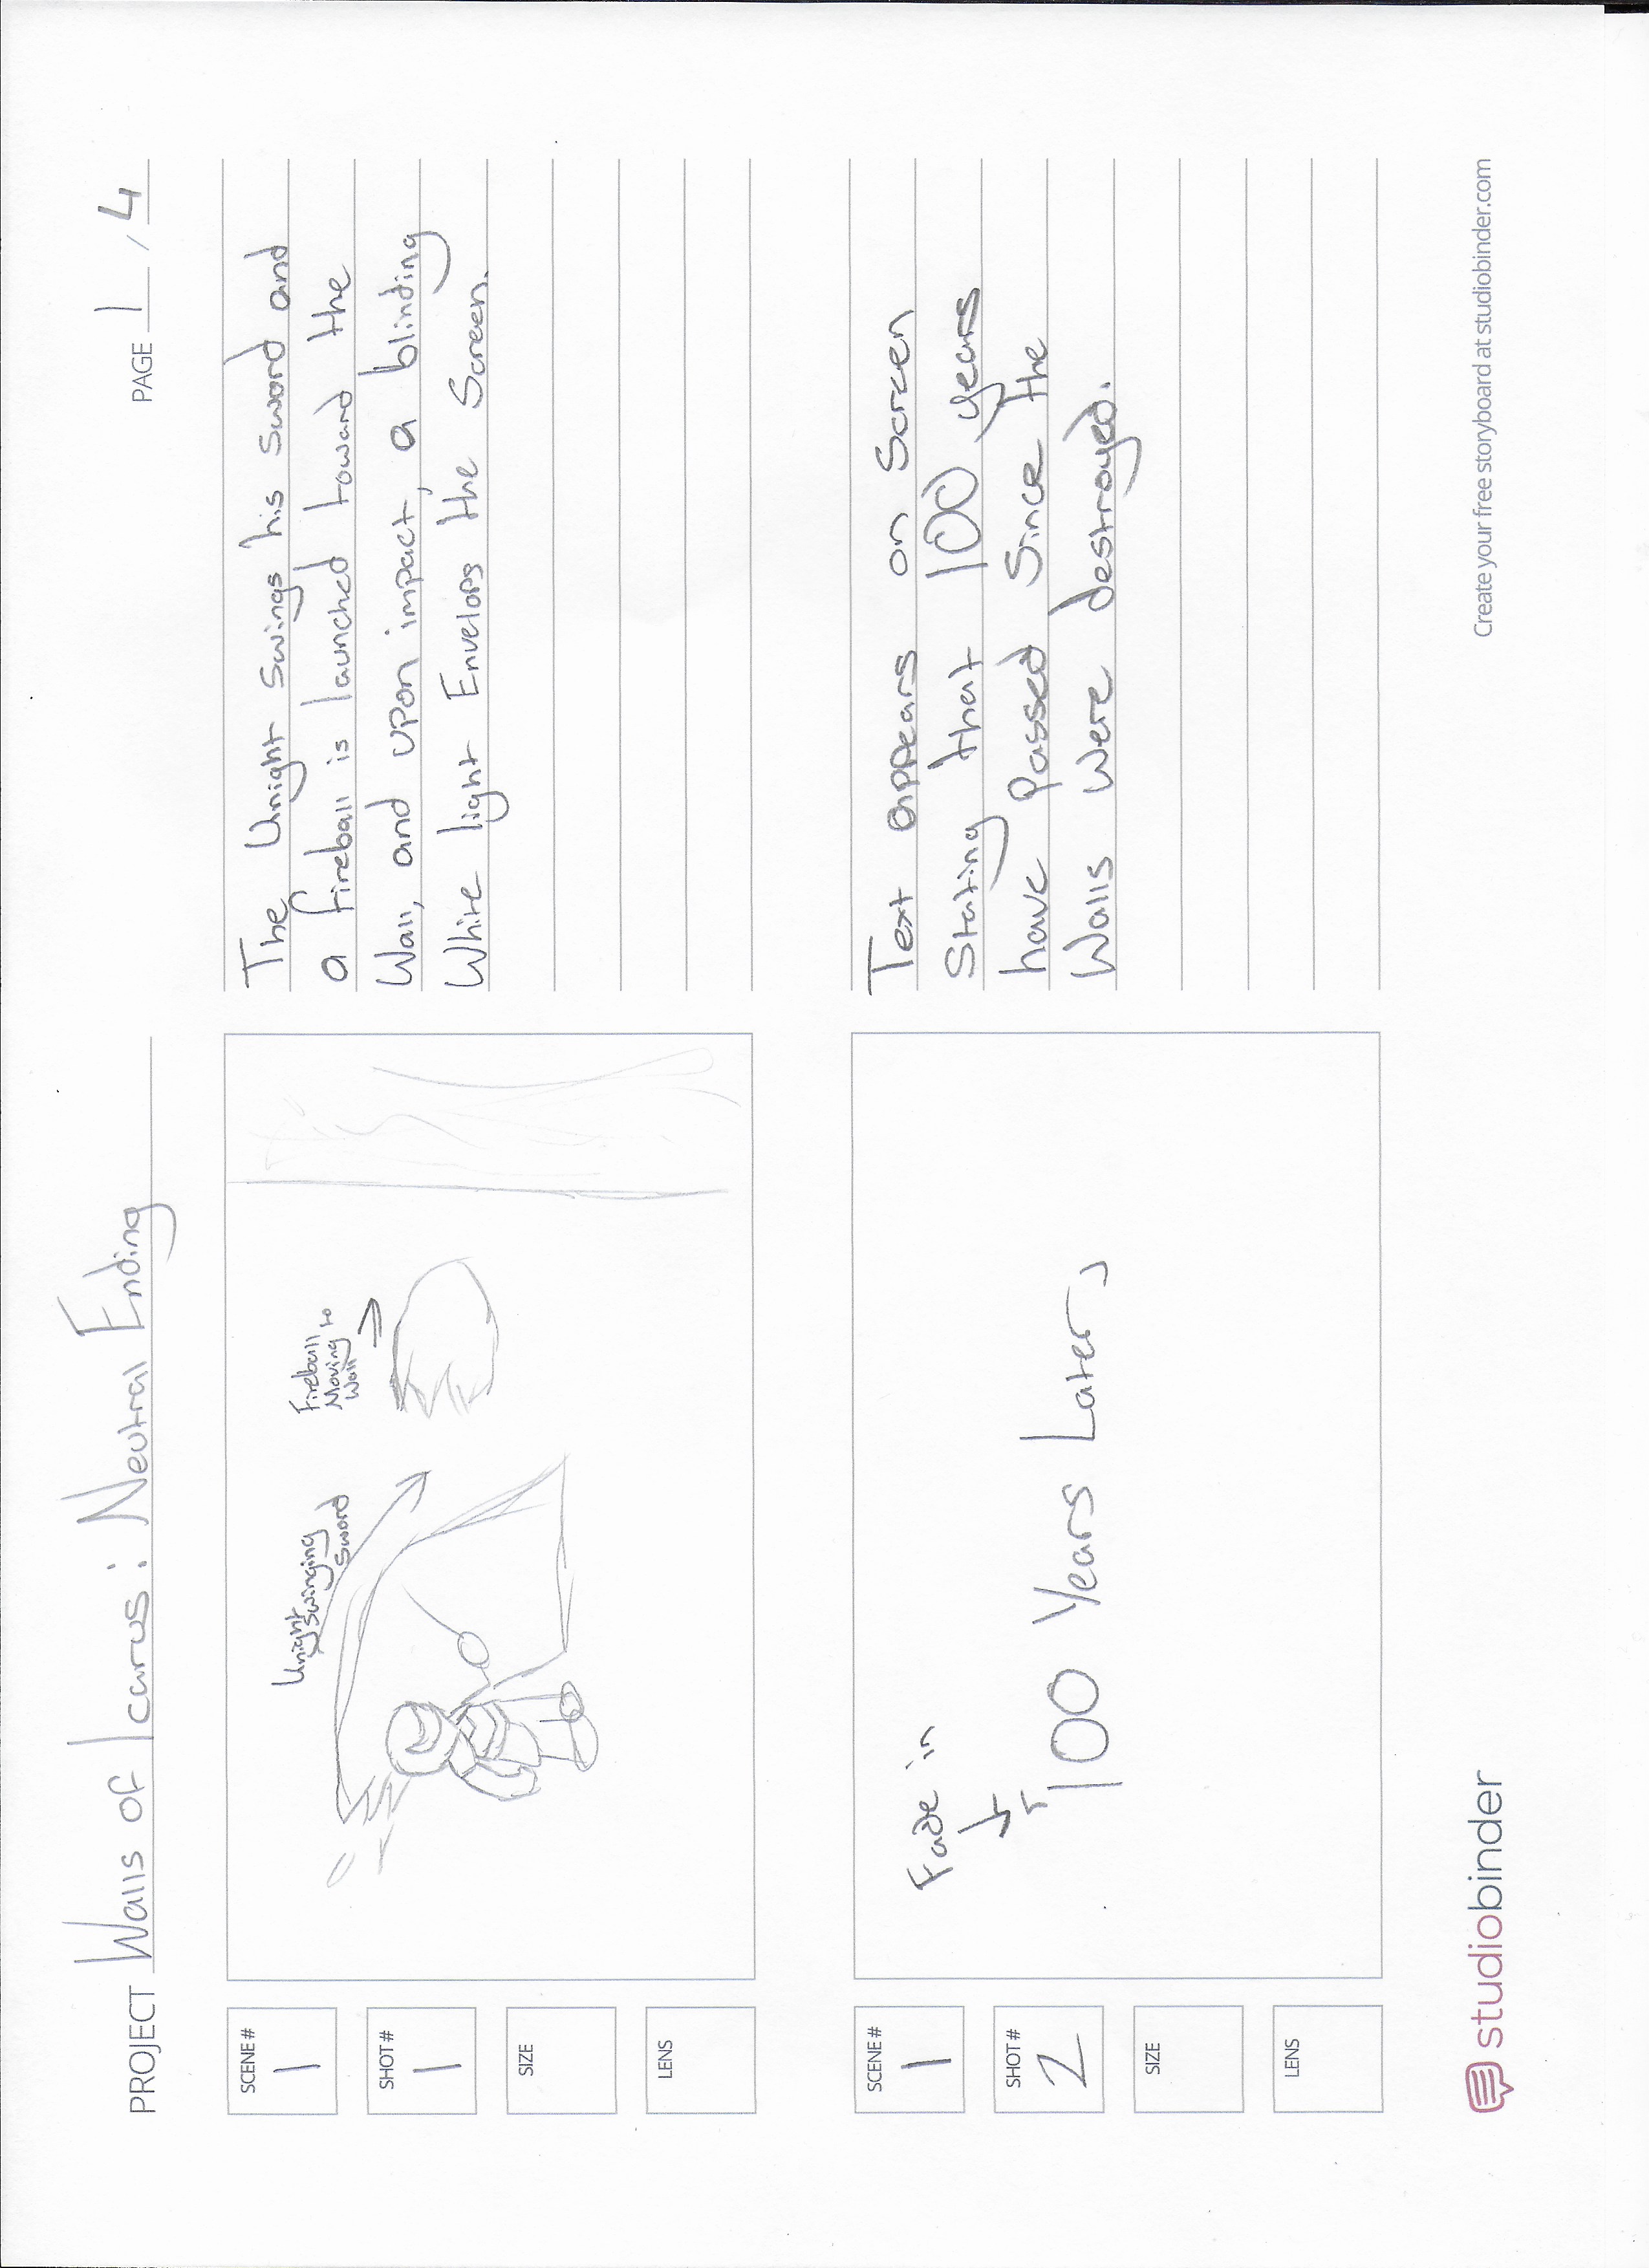 PROJECT Walls of Icarus: Neutral Ending
PAGE 1 / 4
SCENE #
1
SHOT #
1
SIZE
LENS
Unight
Swinging
Sword
Fireball
Moving to
Wall
The Unight Swings his Sword and
a fireball is launched toward the
Wall, and upon impact, a blinding
White light Envelops the Screen.
SCENE #
1
SHOT #
2
SIZE
LENS
Fade in
100 Years Later
Text appears on Screen
Stating that 100 years
have Passed Since the
Walls Were destroyed.
studiobinder
Create your free storyboard at studiobinder.com